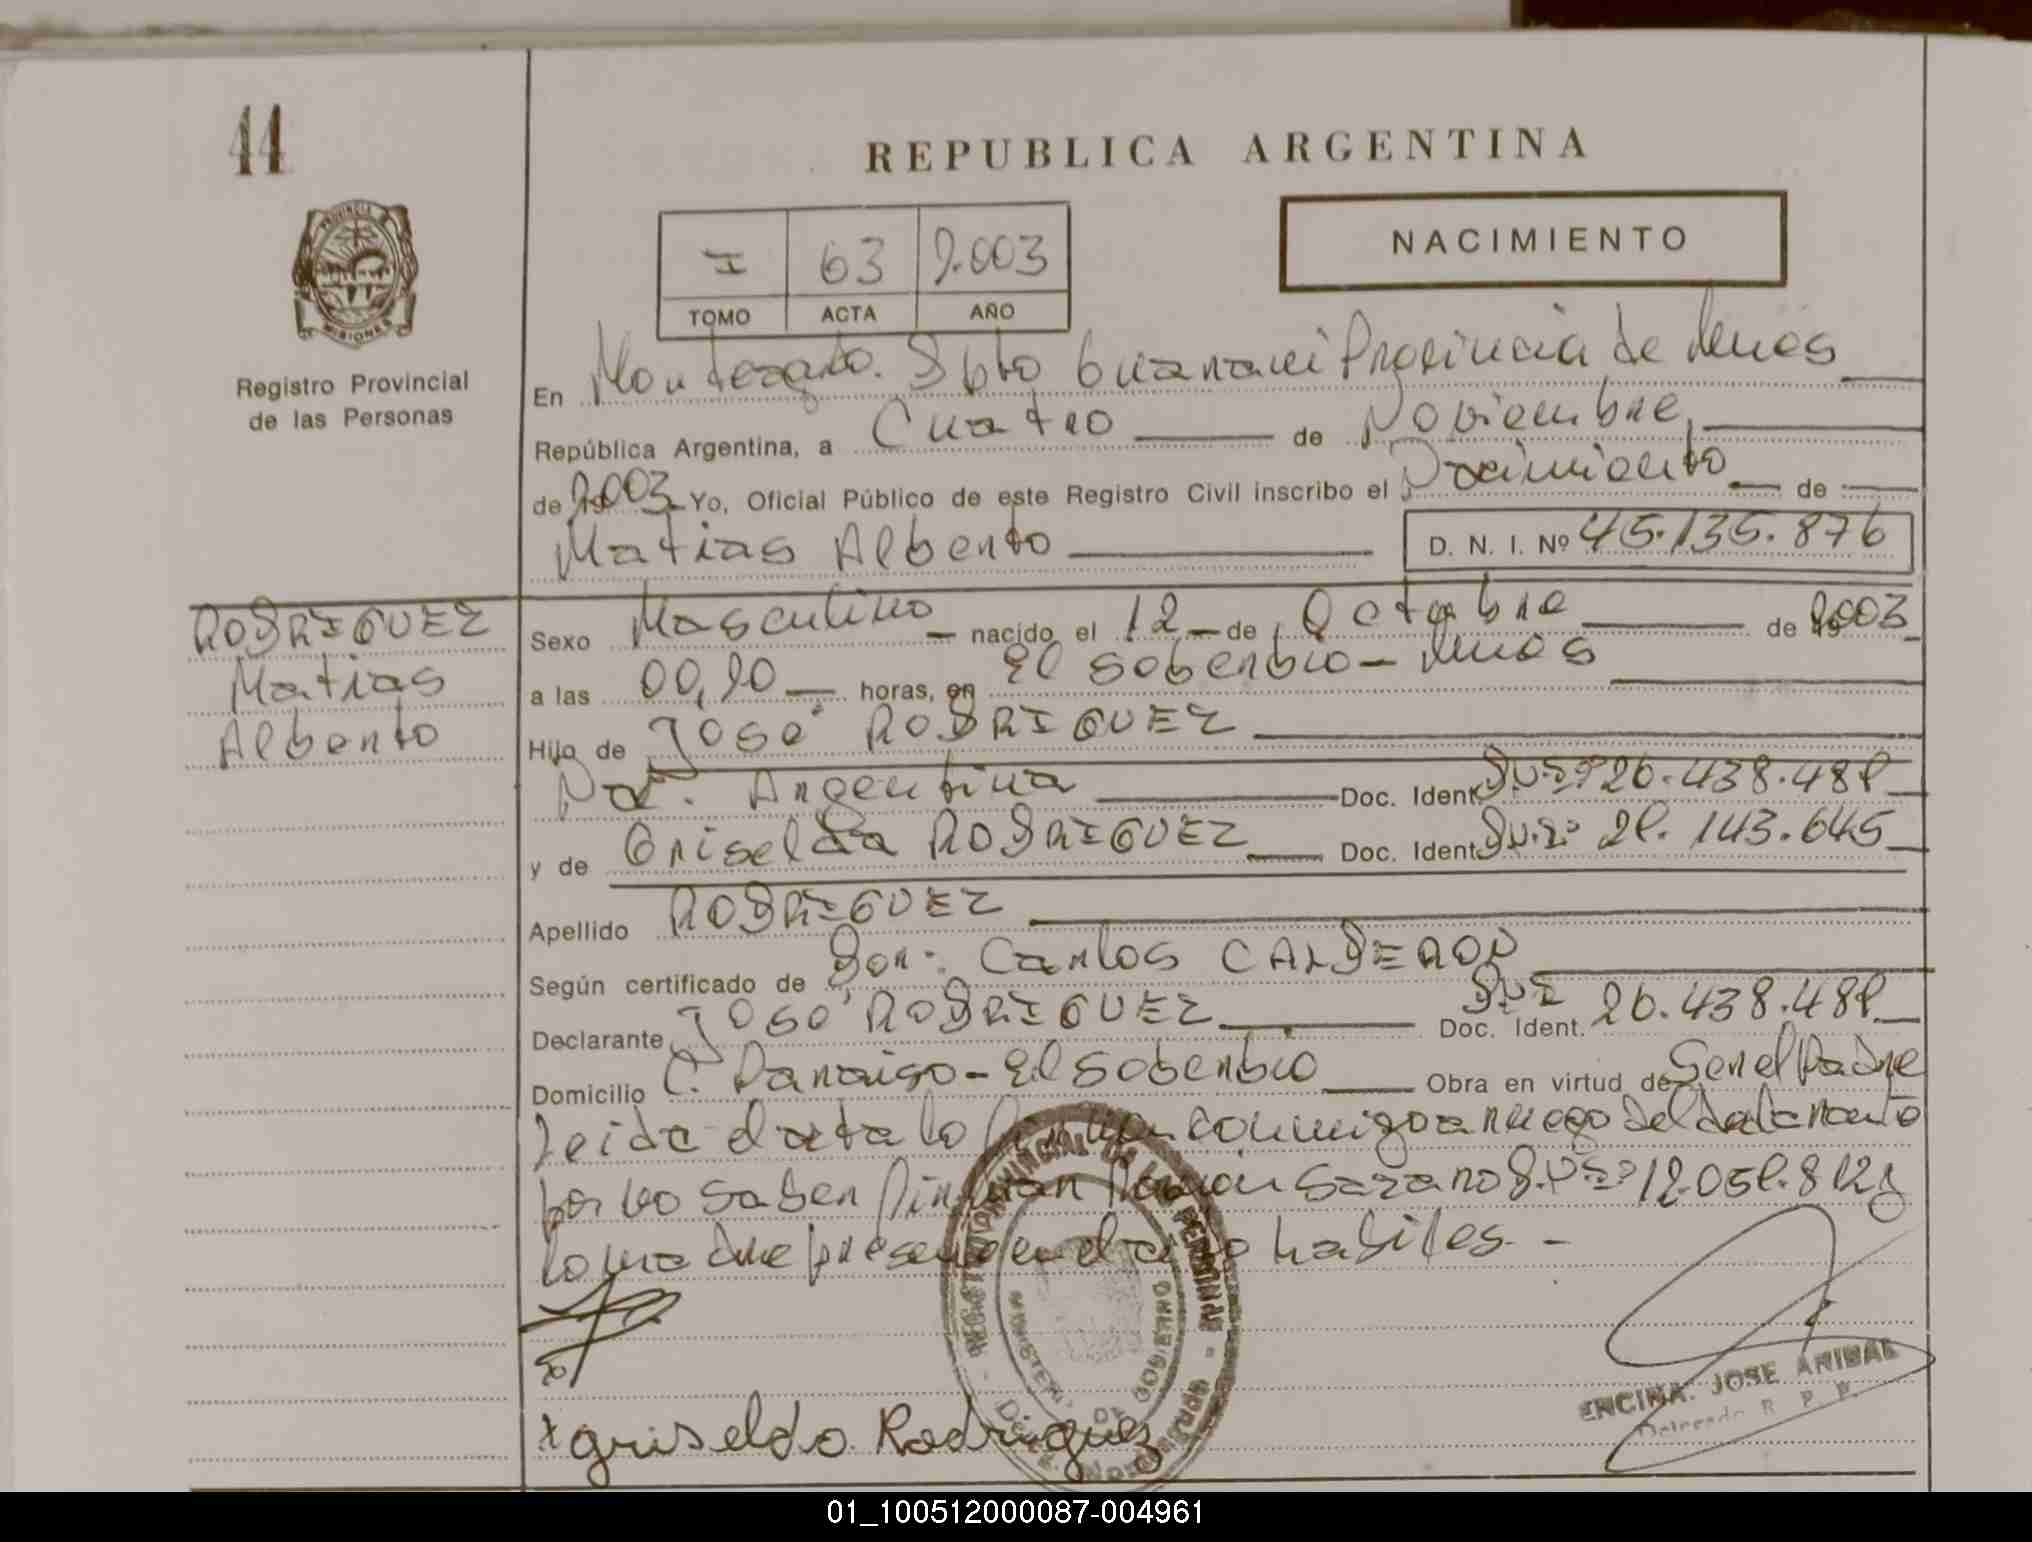 44
REPUBLICA ARGENTINA
PROVINCIA DE MISIONES
Registro Provincial
de las Personas
I 63 2.003
TOMO ACTA AÑO
NACIMIENTO
En Dpto Guaraní Provincia de Mnes
República Argentina, a Cuatro de Noviembre
de 2.003 Yo, Oficial Público de este Registro Civil inscribo el Nacimiento de
Matias Alberto D. N. I. Nº 45.135.876
RODRIGUEZ
Matias
Alberto
Sexo Masculino nacido el 12 de Octubre de 2.003
a las horas, en El Soberbio - Mnes
Hijo de José RODRIGUEZ
Nac. Argentina Doc. Ident.
y de Griselda RODRIGUEZ Doc. Ident.
Apellido RODRIGUEZ
Según certificado de Dor: Carlos CALDERON
Declarante José RODRIGUEZ Doc. Ident.
Domicilio C. Paraiso - El Soberbio Obra en virtud de Ser el Padre
Leida el acta lo conmigo a ruego del declarante
por no saber firmar Ramón
la madre presente en el acto habiles. -
REGISTRO PROVINCIAL DE LAS PERSONAS
MINISTERIO DE GOBIERNO
ENCINA JOSE ANIBAL
Delegado R. P. P.
x griselda Rodriguez
01_100512000087-004961